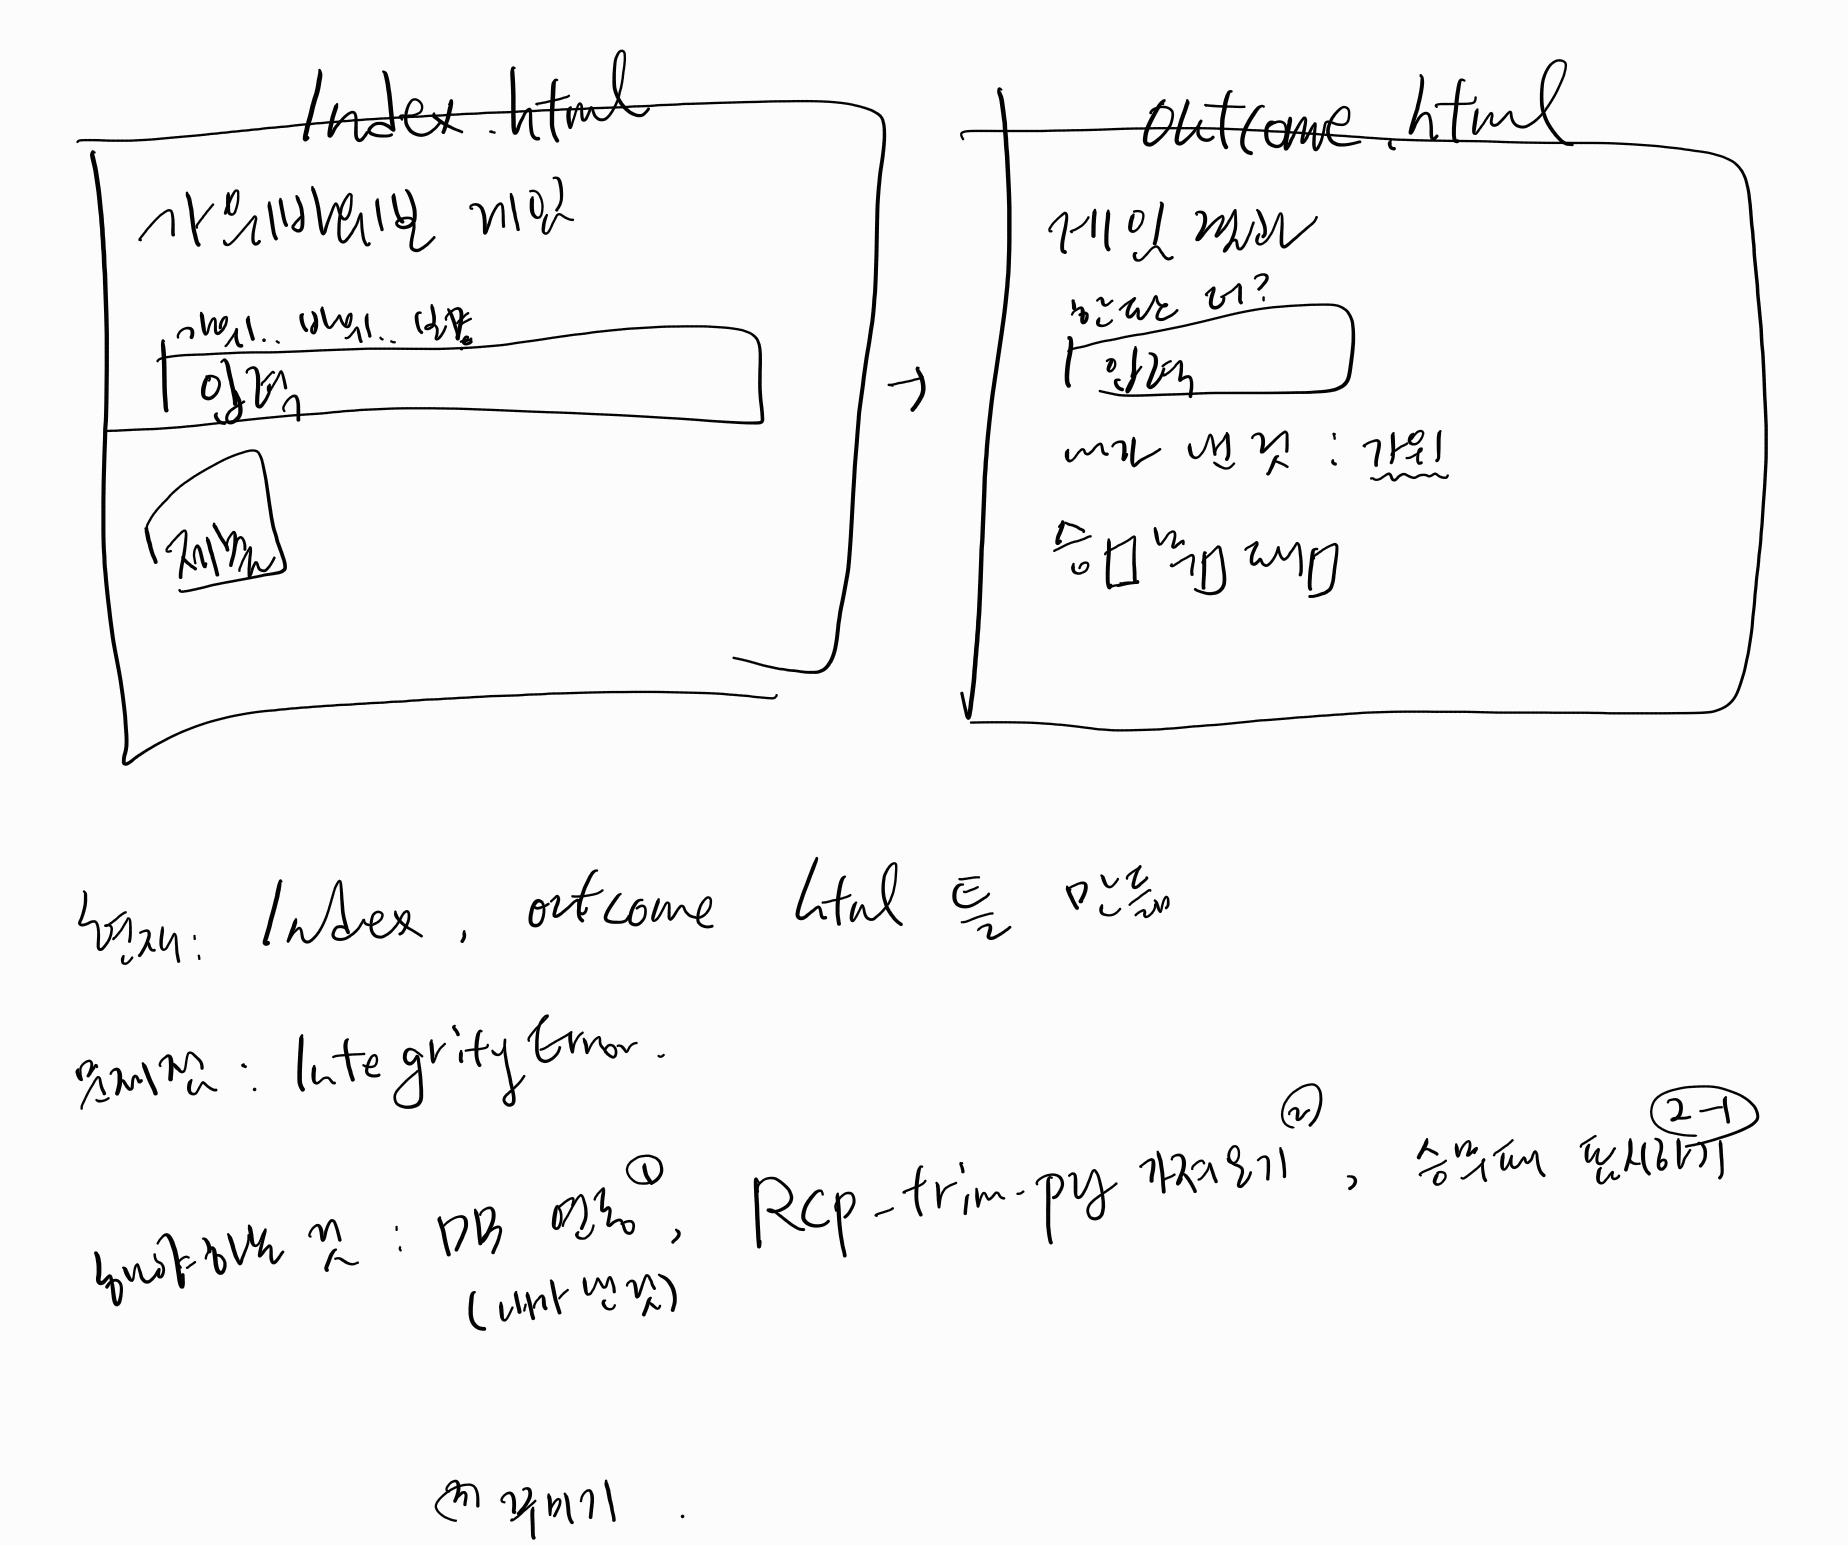 Index.html
가위바위보 게임
가위.. 바위.. 보
입력
제출
→
outcome.html
게임 결과
한판 더?
입력
내가 낸 것 : 가위
승□ 무□ 패□
현재: Index, outcome html 틀 만듦
문제점 : IntegrityError.
해야할 것 : DB 연동 ①, Rcp_trim.py 가져오기 ②, 승무패 표시하기 2-1
(내가 낸 것)
꾸미기.